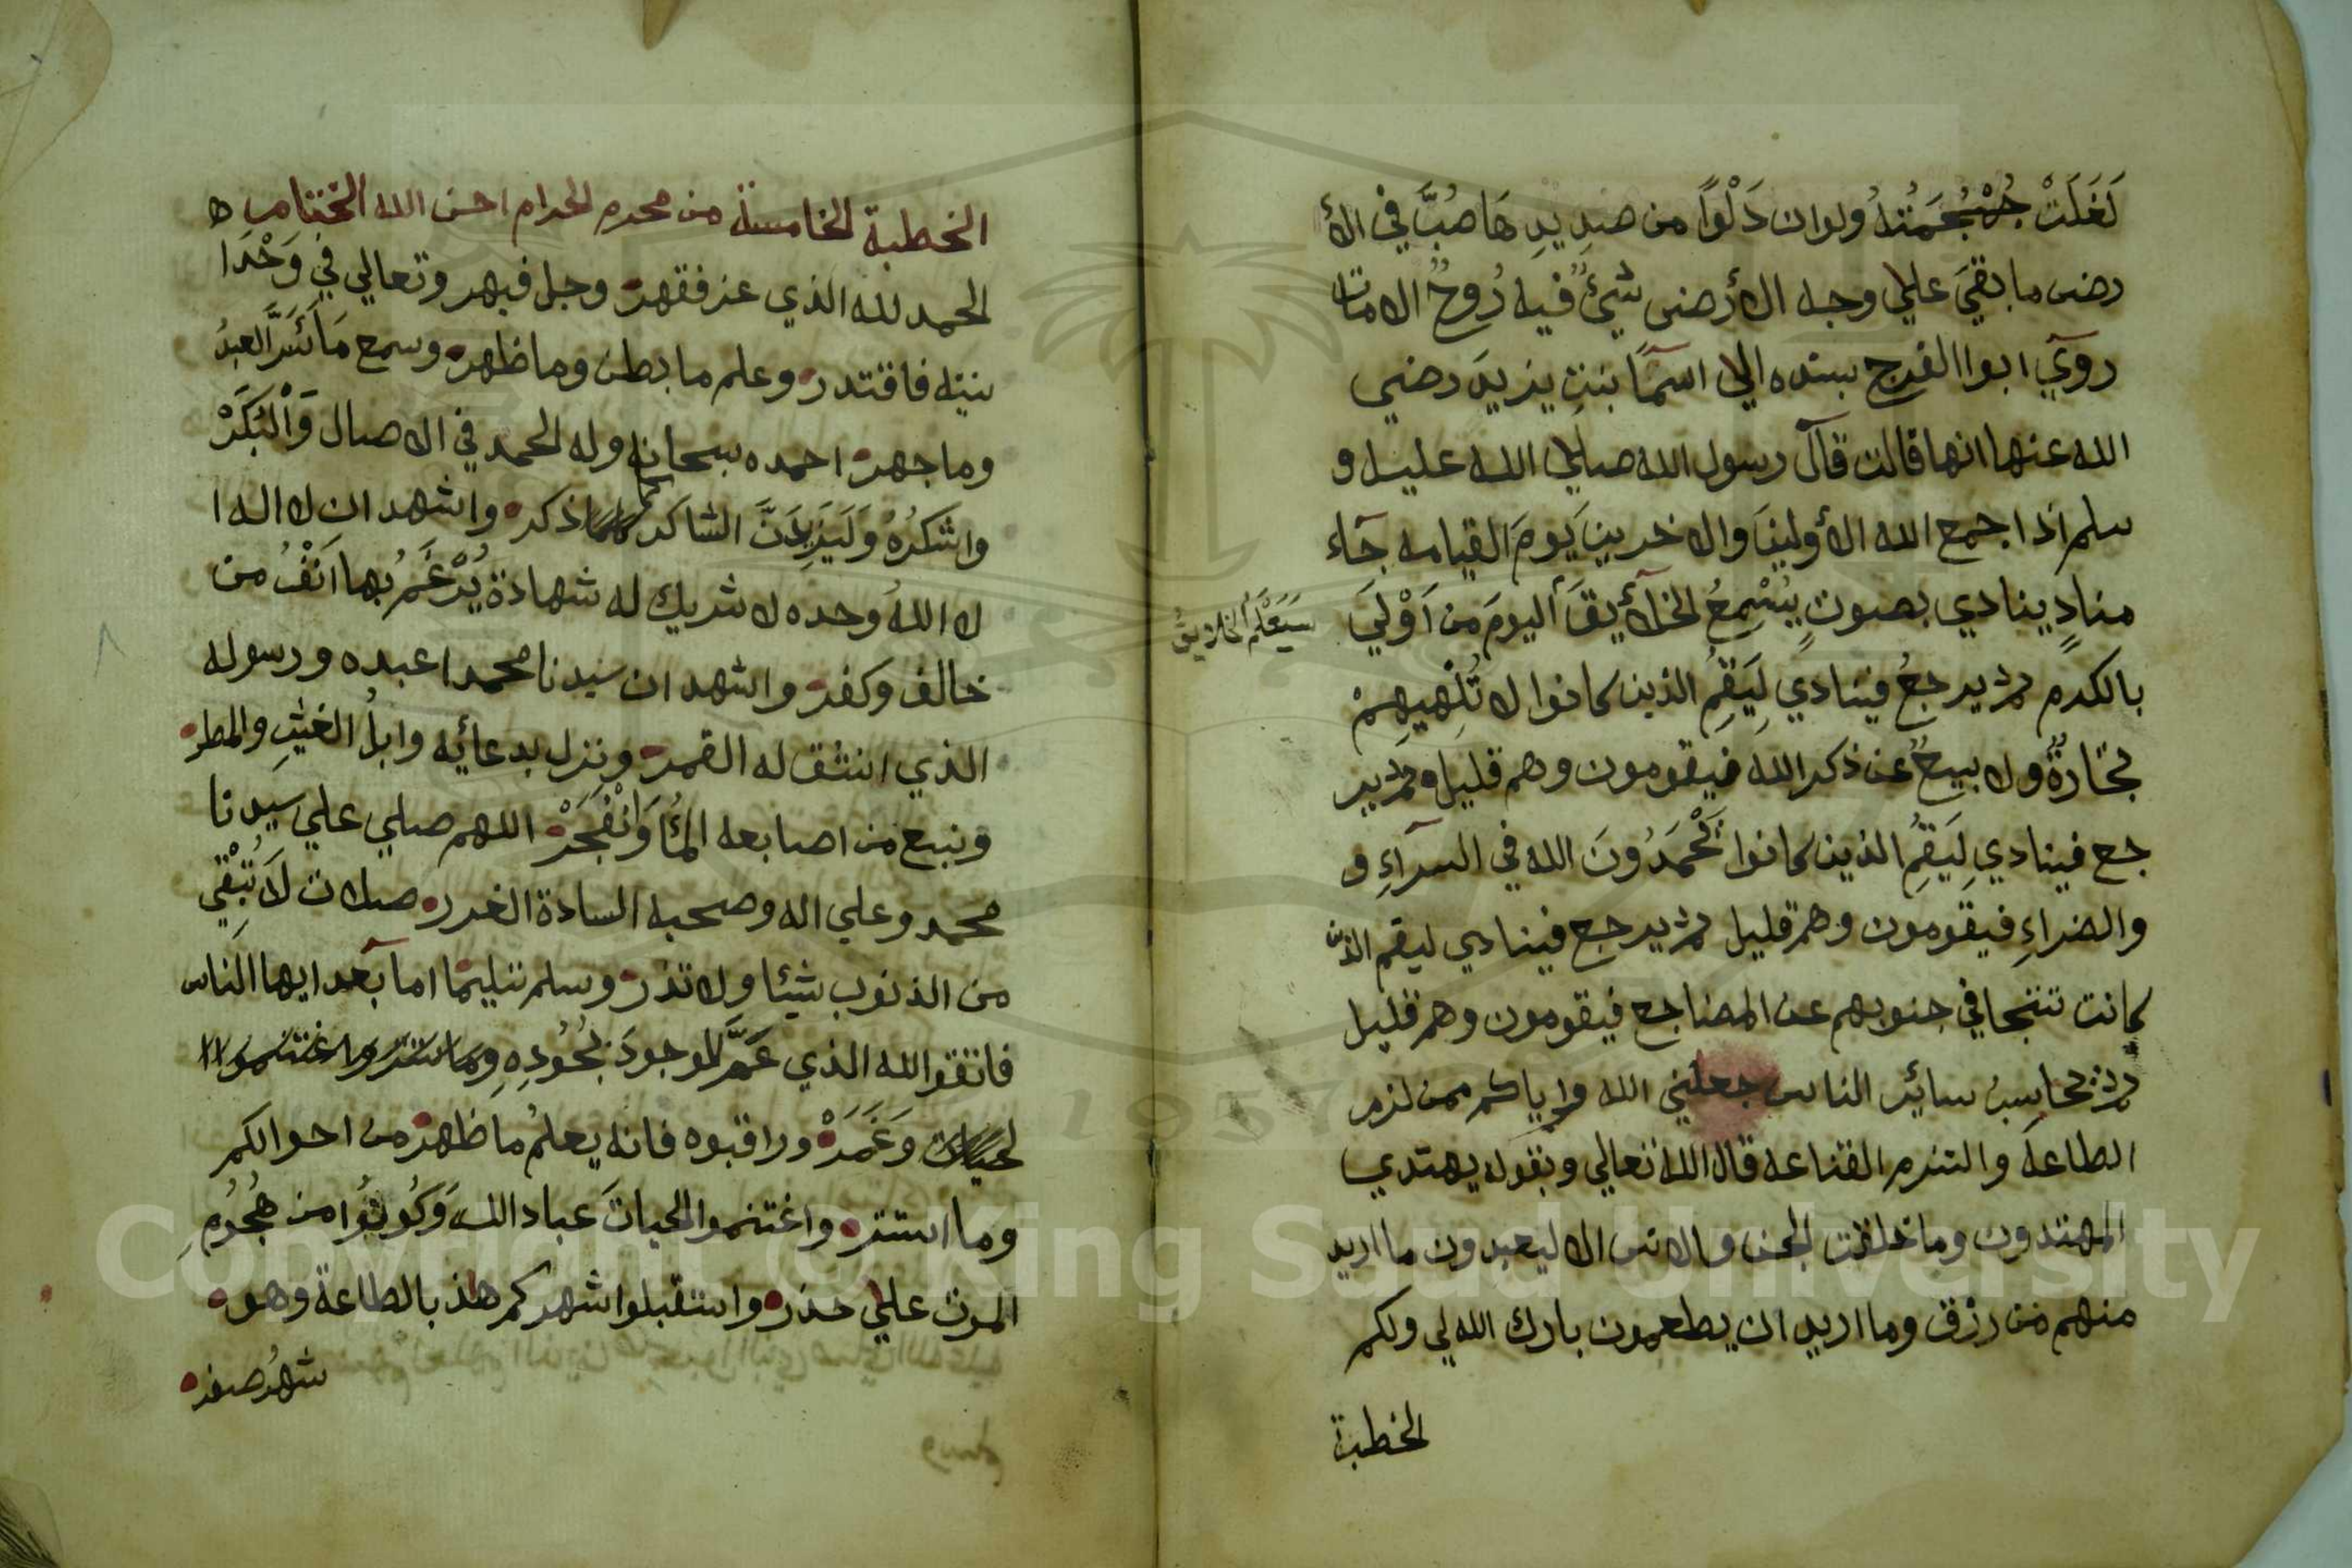 لَغَلَتْ جُمْجُمَتُهُ ولوان دَلْواً من صَدِيدِهَا صُبَّ في الأ
رض ما بقيَ علي وجه الأرض شيئٌ فيه رُوحٌ الا مات
روي ابوا الفرج بسنده الي اسمآ بنتِ يزيدَ رضي
الله عنها انها قالت قال رسول الله صلي الله عليه و
سلم اذا جمع الله الأولينَ والاخرينَ يومَ القيامه جآء
منادٍ ينادي بصوتٍ يُسْمِعُ الخلأيقَ اليومَ من اَوْلَي
سَيَعْلَمُ الخلايقُ
بالكرم ثم يرجعُ فينادي لِيَقُمِ الذين كانوا لا تُلْهِيهِمْ
تجارةٌ ولا بيعٌ عن ذكر الله فيقومون وهم قليل ثم ير
جع فينادي لِيَقُمِ الذين كانوا يَحْمَدُونَ الله في السرآءِ و
والضراءِ فيقومون وهم قليل ثم يرجع فينادي ليقم الذين
كانت تتجافي جنوبهم عن المضاجع فيقومون وهم قليل
ثم يحاسب سائر الناس جعلني الله واياكم ممن لزم
الطاعة والتزم القناعة قال الله تعالي وبقوله يهتدي
المهتدون وما خلقت الجن والانس الا ليعبدون ما اريد
منهم من رزق وما اريد ان يطعمون بارك الله لي ولكم
الخطبة
الخطبة الخامسة من محرم الحرام احسن الله الختام
الحمد لله الذي عز فقهر وجل فبهر وتعالي في وَحْدَا
نيته فاقتدر وعلم ما بطن وما ظهر وسمع مَا اَسَرَّ العبدُ
وما جهر احمده سبحانه وله الحمد في الاصال وَاْلبُكَرْ
واشكرُهُ وَلَيَزِيدَنَّ الشاكر كلما ذكر واشهد ان لا اله ا
لا اللهُ وحده لا شريك له شهادة يُرْغَمُ بها اَنْفُ من
خالف وكفر واشهد ان سيدنا محمدا عبده ورسوله
الذي انشق له القمر ونزل بدعائه وابلُ الغيثِ والمطر
ونبع من اصابعه المأُ وَانْفَجَرْ اللهم صلي علي سيدنا
محمد وعلي اله وصحبه السادة الغرر صلات لَا تُبْقِي
من الذنوب شيئا ولا تذر وسلم تسليما اما بعد ايها الناس
فاتقوا الله الذي عَمَّ الموجودَ بجُودِهِ
وَغَمَرْ وراقبوه فانه يعلمُ ما ظهر من احوالكم
وما استتر واغتنموا الحياتَ عباد الله وَكُونُوا من هُجُومِ
الموت علي حذر واستقبلوا شهركم هذ بالطاعة وهو
شهرُ صفر
Copyright © King Saud University
1957